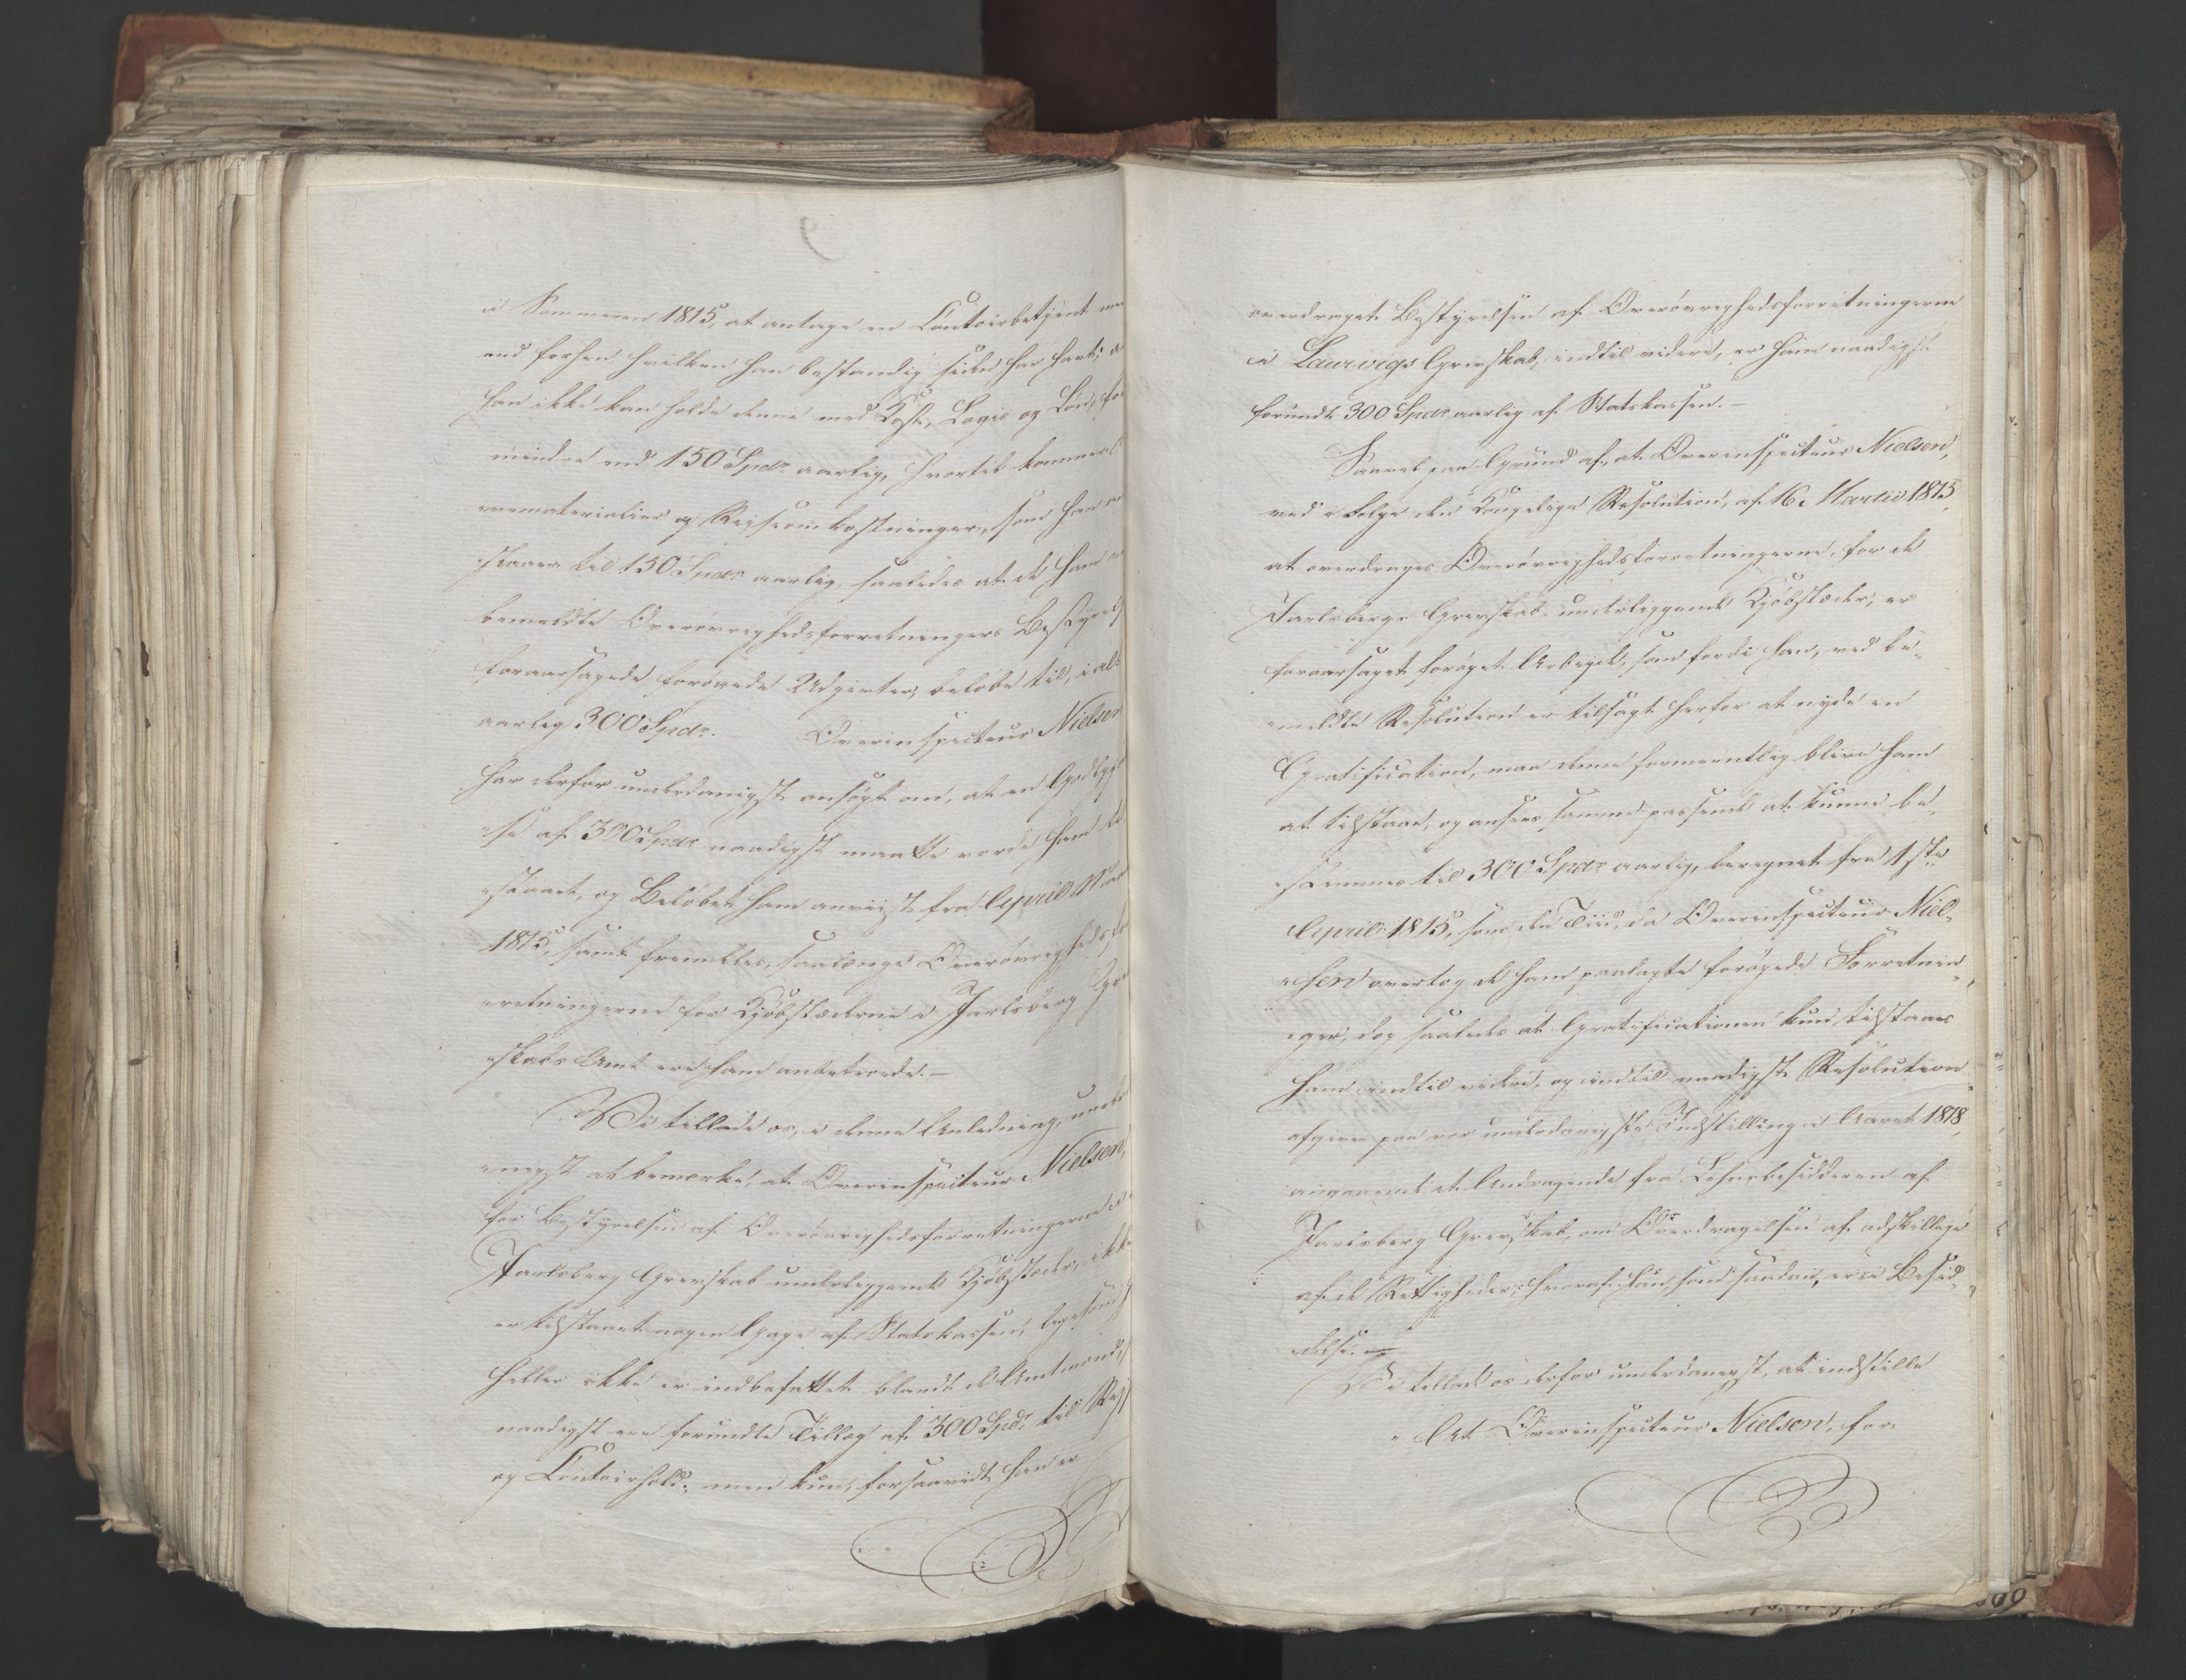 i Sommeren 1815, at antage en Contoirbetjent
end forhen hvilken han bestandig siden har havt;
han ikke kan holde denne med Kost, Logis og Løn, for
mindre end 150 Spdr aarlig, hvortil kommer
vematerialier og Reiseomkostninger, som han
slaaer til 150 Spdr aarlig, saaledes at de ham
bemeldte Overøvrighedsforretningers Bestyrel
foraarsagede forøgede Udgivter, beløbe til, ialt
aarlig 300 Spdr. — Overinspecteur Nielsen
har derfor underdanigst ansøgt om, at en Godtgjø
„se af 300 Spdr naadigst maatte vorde ham til
„staaet, og Beløbet ham anviist fra April
1815, samt fremdeles, saalænge Overøvrighedsfor
„retningerne for Kjøbstæderne i Jarlsberg Gre
„skabs Amt ere ham anbetroede. —
Vi tillade os, i denne Anledning, under
„nigst at bemærke, at Overinspecteur Nielsen,
for Bestyrelsen af Overøvrighedsforretningerne i
Jarlsberg Grevskab underliggende Kjøbstæder, ikke
er tilstaaet nogen Gage af Statskassen, ligesom
heller ikke er indbefattet blandt de Amtmænd,
naadigst ere forundte Tillæg af 300 Spdr til
og Contoirhold; men kun, forsaavidt han er
overdraget Bestyrelsen af Overøvrighedsforretningerne
i Laurvigs Grevskab, indtil videre, er ham naadigst
forundt 300 Spdr aarlig af Statskassen. —
Saavel paa Grund af, at Overinspecteur Nielsen,
ved i Følge den Kongelige Resolution, af 16. Martii 1815,
at overdrages Overøvrighedsforretningerne, for de
Jarlsbergs Grevskab underliggende Kjøbstæder, er
foraarsaget forøget Arbeyde, som fordi han, ved be„
„meldte Resolution er tilsagt herfor at nyde en
Gratification, maa denne formeentlig blive ham
at tilstaae, og ansees samme passende at kunne be„
„stemmes til 300 Spdr aarlig, beregnet fra 1ste
April 1815, som den Tiid, da Overinspecteur Niel„
„sen overtog de ham paalagte forøgede Forretnin„
„ger, dog saaledes at Gratificationen kun tilstaaes
ham indtil videre, og indtil naadigst Resolution
afgives paa vor underdanigste Indstilling i Aaret 1818,
angaaende et Andragende fra Lehnsbesidderen af
Jarlsberg Grevskab, om Overdragelsen af adskillige
af de Rettigheder, hvoraf han, som saadan, er i Besid„
„delse.
Vi tillade os derfor underdanigst, at indstille
„ At Overinspecteur Nielsen, for